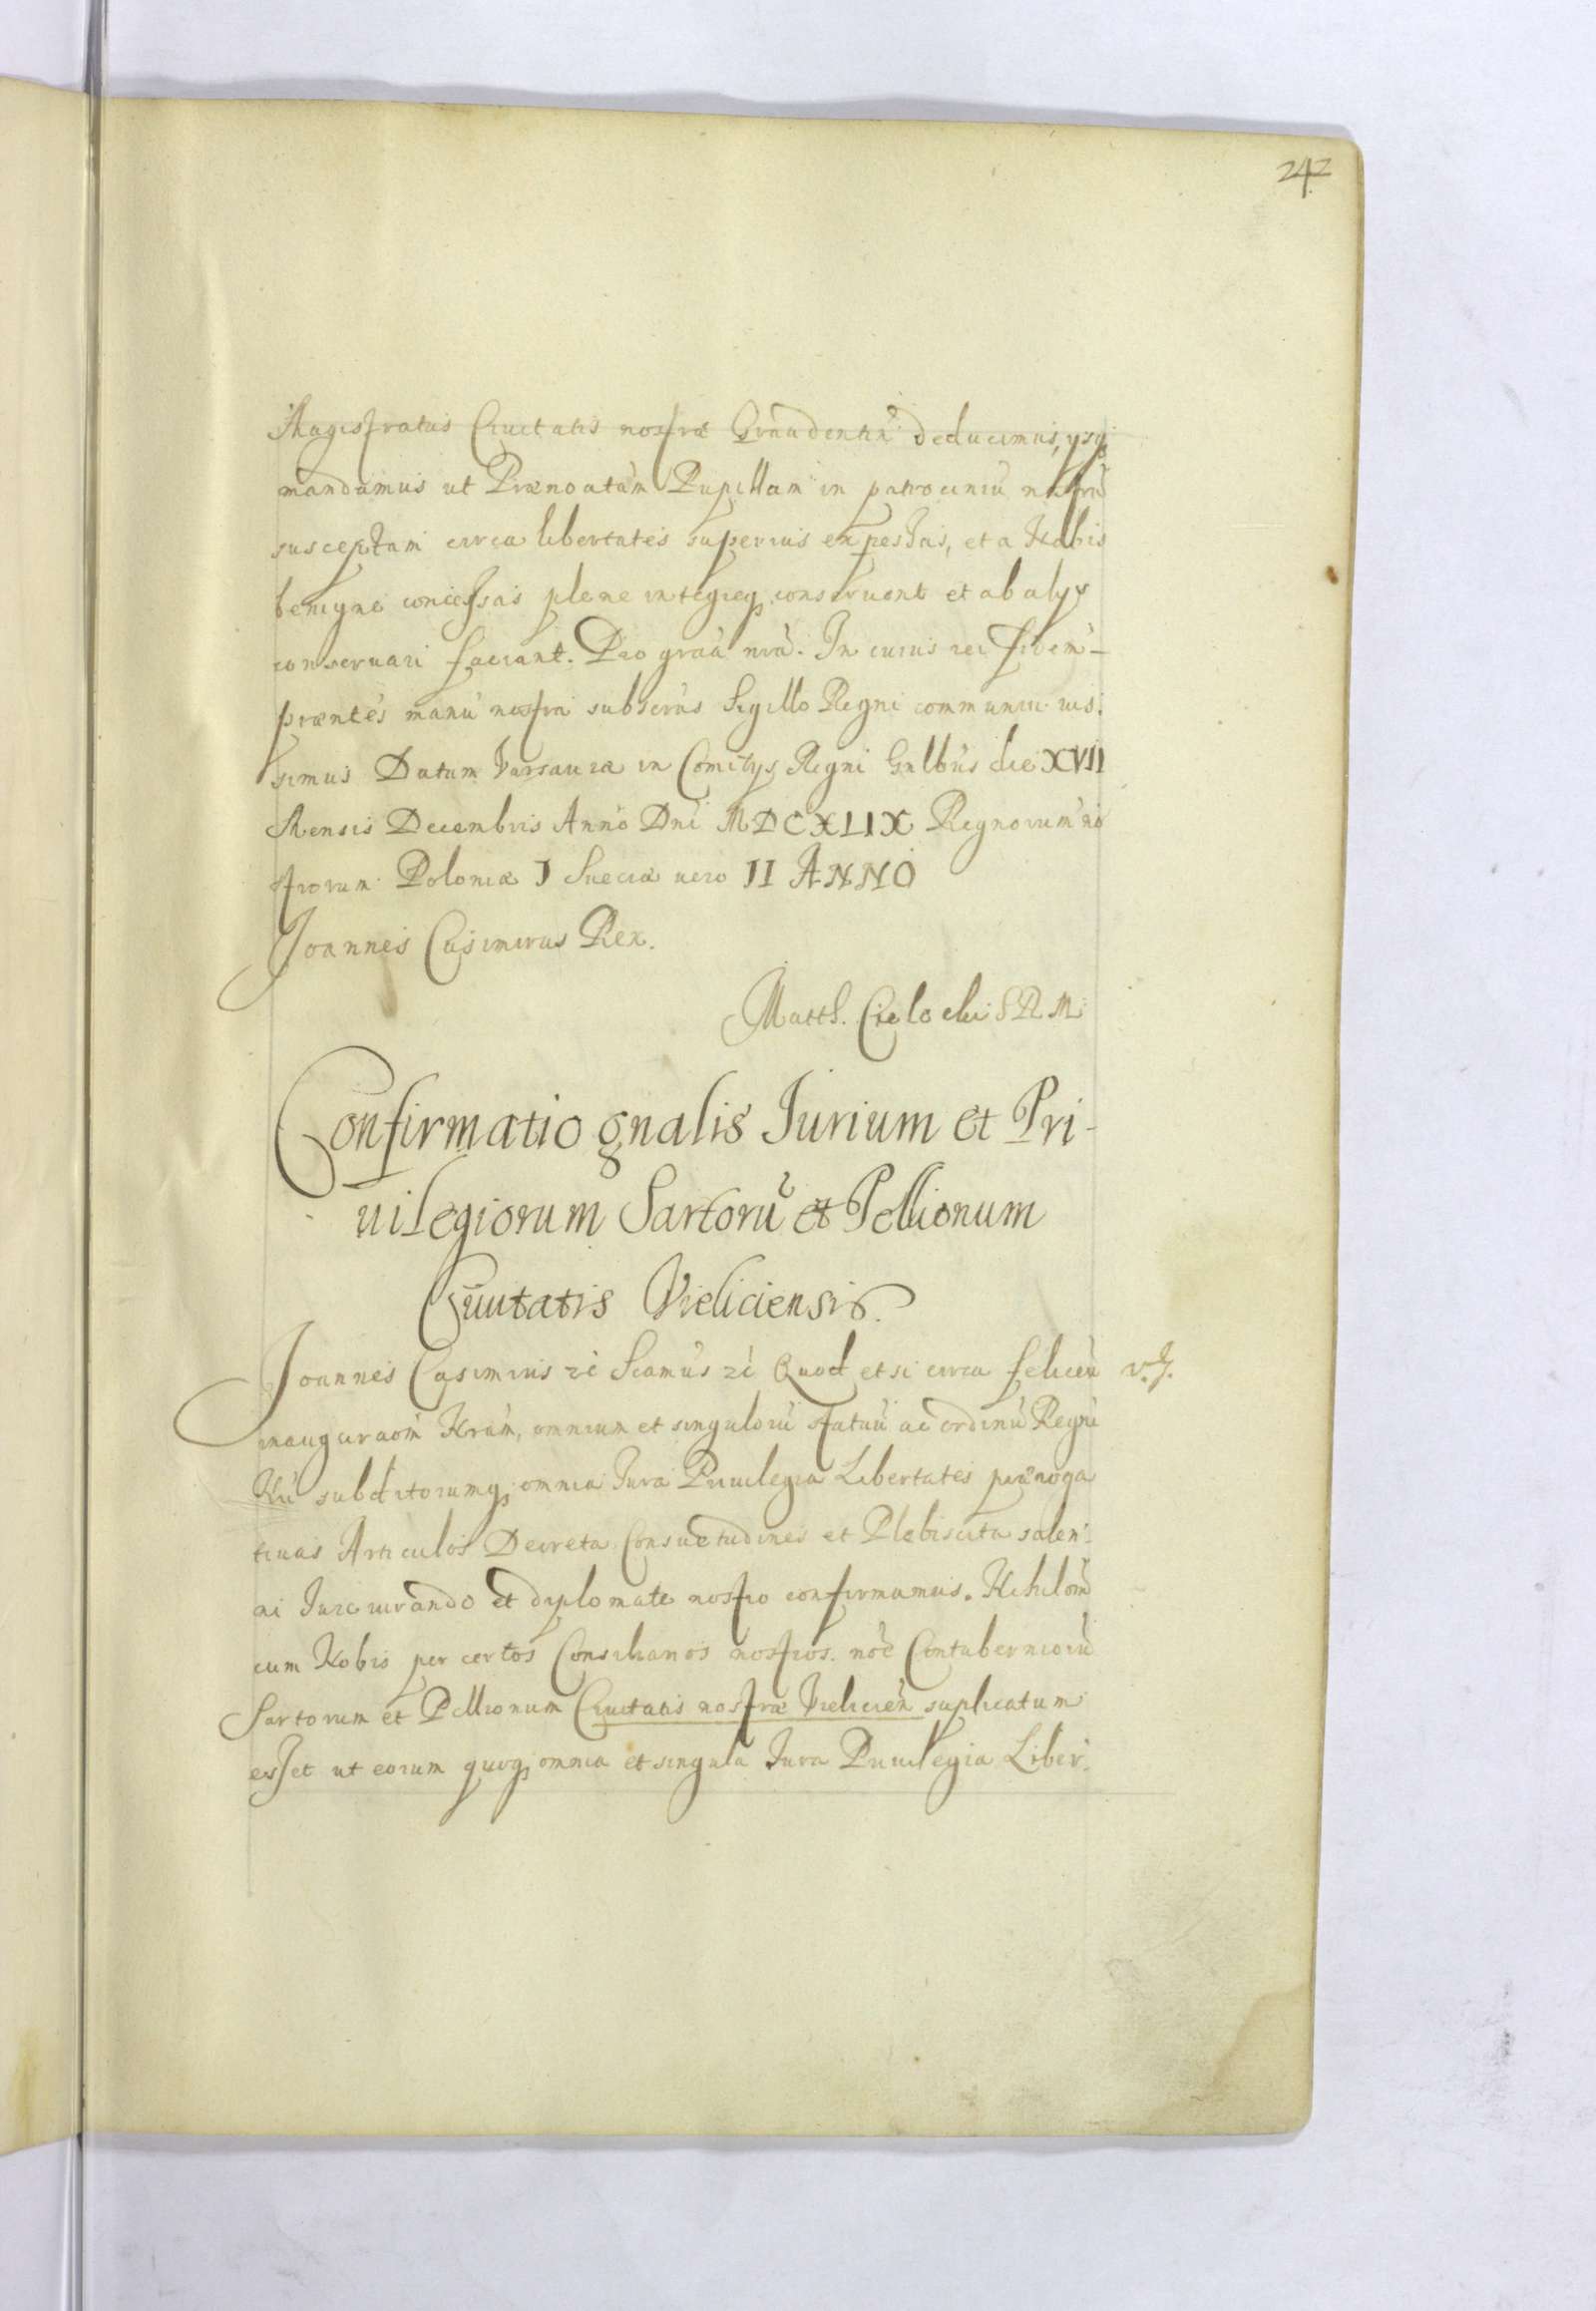 242
Magistratus Ciuitatis nostræ Graudentiñ deducimus, ysq
mandamus ut Prænoatam Pupillam in patrociniũ nostrũ
susceptam circa libertates superius expressas, et a Nobis
benigne concessas plene integreq conseruent et ab alys
conseruari faciant. Pro graã nrã. In cuius rei fidem
præntes manu nostra subscrãs Sigillo Regni communiri ius:
simus Datum Varsauiæ in Comitys Regni Gnlbus die XVII
Mensis Decembris Anno Dni MDCXLIX Regnorum no
strorum Poloniæ I Sueciæ uero II ANNO
Joannes Casimirus Rex.
Matth. Cielo SRM
Confirmatio gnalis Iurium et Pri-
uilegiorum Sartorũ et Pellionum
Ciuitatis Vieliciensis.
Joannes Casimirus zc Scimus zc Quod etsi circa felicem
inauguraom Nram, omnium et singulorũ statuũ ac ordinũ Regni
Nri subditorumq omnia Iura Priuilegia Libertates præroga
tiuas Articulos Decreta Consuetudines et Plebiscita solen
ni Iureiurando et diplomate nostro confirmamus. Nihilom̃
cum Nobis per certos Consiliarios nostros. noe Contuberniorũ
Sartorum et Pellionum Ciuitatis nostræ Vielicieñ suplicatum
esset ut eorum quoq omnia et singula Iura Priuilegia Liber